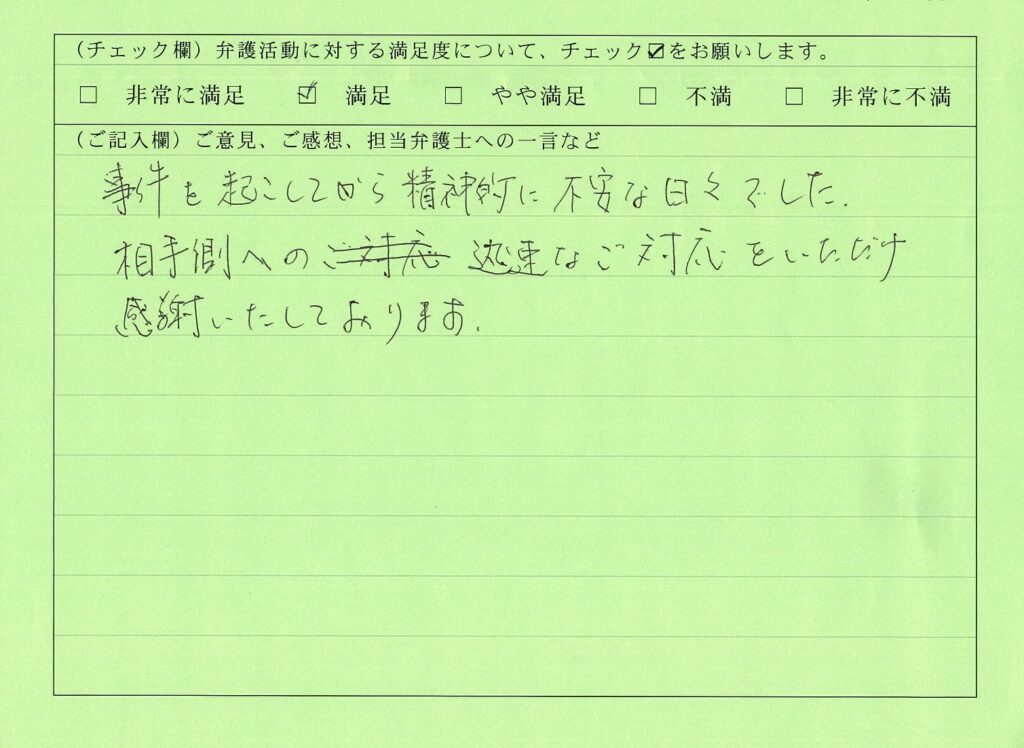 (チェック欄)弁護活動に対する満足度について、チェック☑をお願いします。
□ 非常に満足 ☑ 満足 □ やや満足 □ 不満 □ 非常に不満
(ご記入欄)ご意見、ご感想、担当弁護士への一言など
事件を起こしてから精神的に不安な日々でした.
相手側への ご対応 迅速なご対応をいただけ
感謝いたしております.